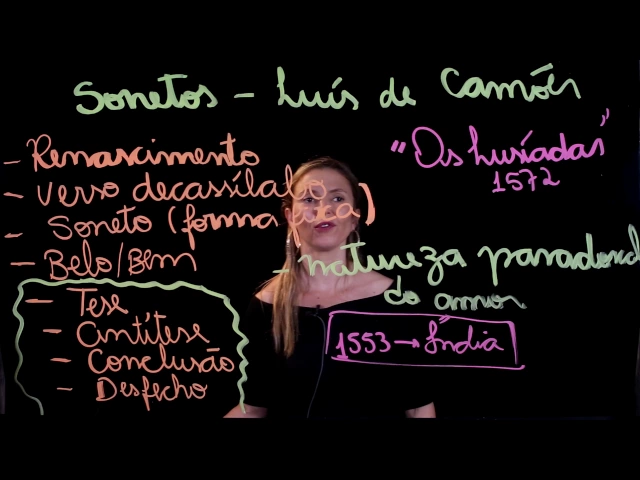 Sonetos - Luís de Camões
- Renascimento
- verso decassílabo
- Soneto (forma fixa)
- Belo/Bem
- Tese
- Antítese
- Conclusão
- Desfecho
"Os Lusíadas"
1572
- natureza paradoxal
do amor
1553 → Índia